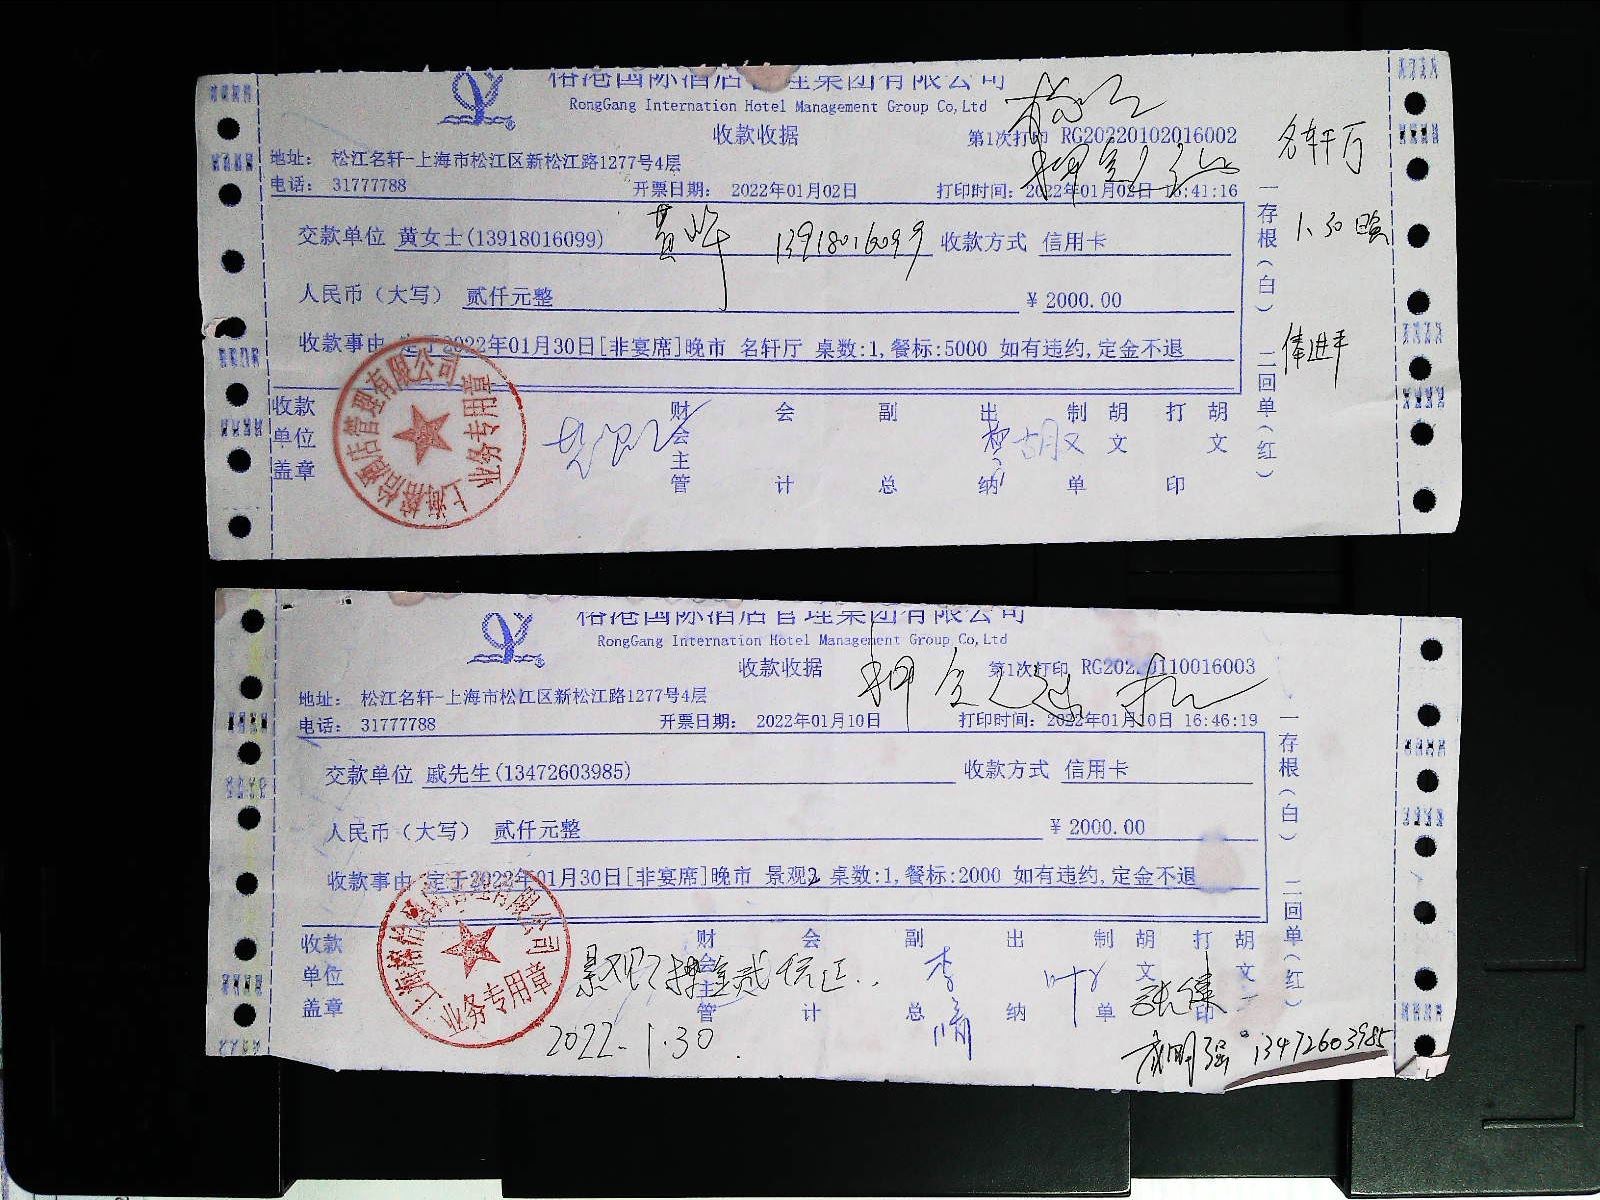 榕港国际酒店管理集团有限公司
RongGang Internation Hotel Management Group Co,Ltd
收款收据
第1次打印 RG20220102016002
地址： 松江名轩-上海市松江区新松江路1277号4层
电话： 31777788 开票日期： 2022年01月02日 打印时间：2022年01月02日 16:41:16
名轩厅
1.30晚
交款单位 黄女士(13918016099) 13918016099 收款方式 信用卡
人民币（大写） 贰仟元整 ¥ 2000.00
收款事由 定于2022年01月30日[非宴席]晚市 名轩厅 桌数:1,餐标:5000 如有违约,定金不退
收款单位盖章 财会主管 会计 副总 出纳 制单 胡文 打印 胡文
一存根（白） 二回单（红）
业务专用章
榕港国际酒店管理集团有限公司
RongGang Internation Hotel Management Group Co,Ltd
收款收据
押金
第1次打印 RG20220110016003
地址： 松江名轩-上海市松江区新松江路1277号4层
电话： 31777788 开票日期： 2022年01月10日 打印时间：2022年01月10日 16:46:19
交款单位 戚先生(13472603985) 收款方式 信用卡
人民币（大写） 贰仟元整 ¥ 2000.00
收款事由 定于2022年01月30日[非宴席]晚市 景观2 桌数:1,餐标:2000 如有违约,定金不退
收款单位盖章 财会主管 会计 副总 出纳 制单 胡文 打印 胡文
一存根（白） 二回单（红）
业务专用章
2022.1.30
13472603985